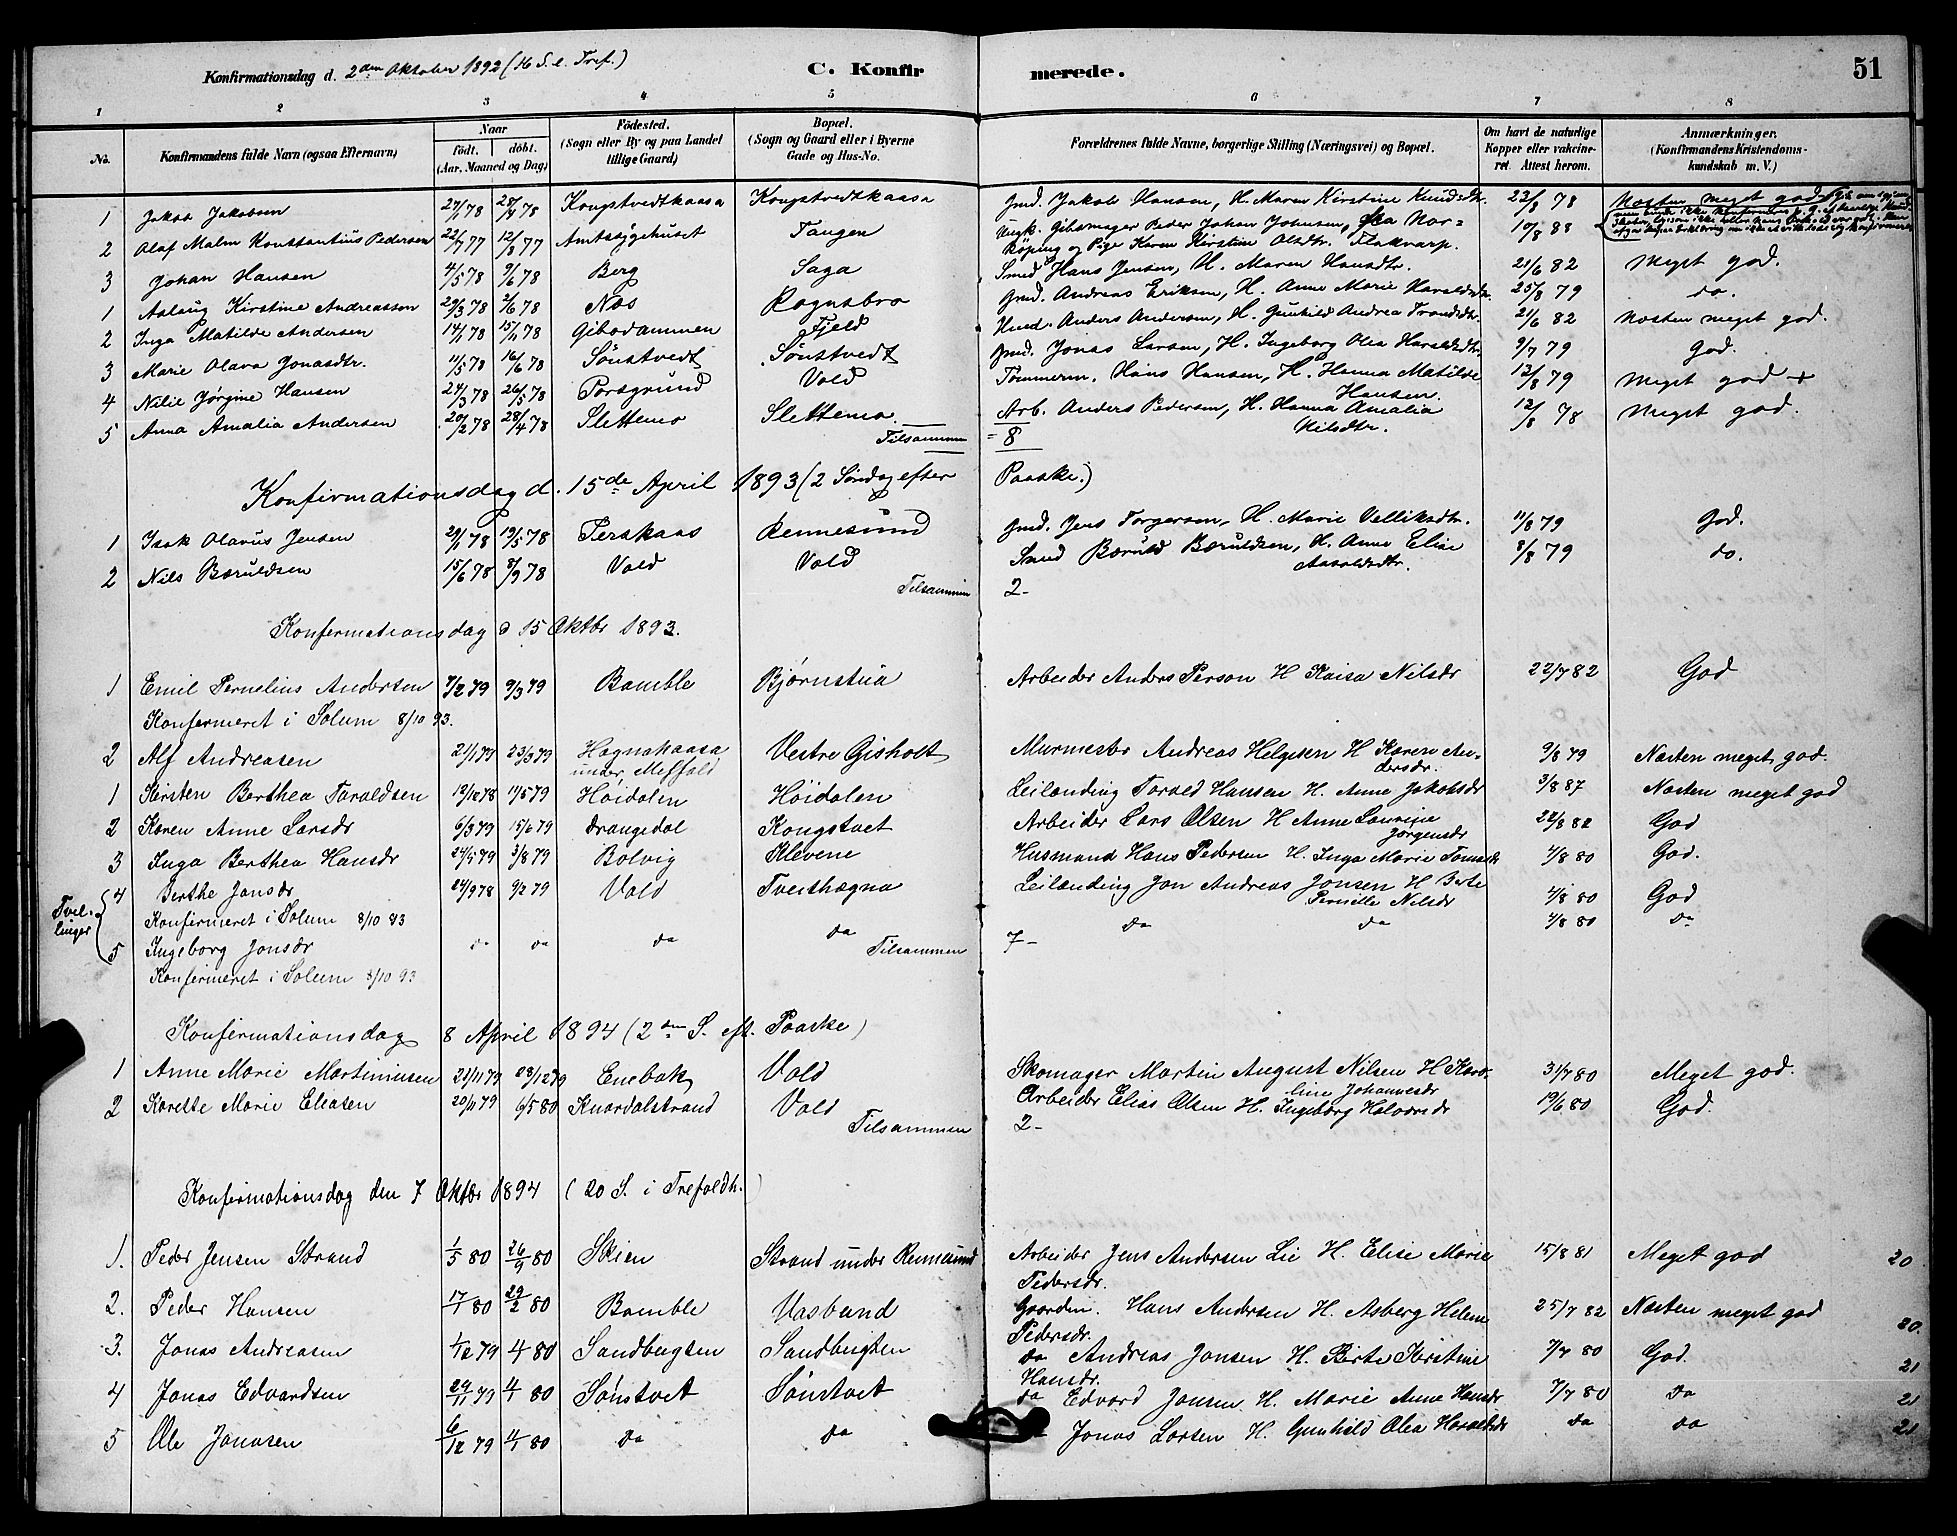 Konfirmationsdag d. 2den Oktober 1892 (16 S. e. Tref.) C. Konfirmerede. 51
1 2 3 4 5 6 7 8
No. Konfirmandens fulde Navn (ogsaa Efternavn) Naar födt. döbt. (Aar, Maaned og Dag) Födested. (Sogn eller By og paa Landet tillige Gaard) Bopæl. (Sogn og Gaard eller i Byerne Gade og Hus-No. Forældrenes fulde Navne, borgerlige Stilling (Næringsvei) og Bopæl. Om havt de naturlige Kopper eller vakcineret. Attest herom. Anmærkninger. (Konfirmandens Kristendomskundskab m. V.)
1 Jakob Jakobsen 27/1 78 28/4 78 Kongstvedtkaasa Kongstvedtkaasa Gmd. Jakob Hansen, H. Maren Kirstine Knudsdtr. 23/8 78 Næsten meget god
2 Olaf Malm Konstantius Pedersen 22/7 77 12/8 77 Amtssygehuset Tangen Ungk. Gibsmager Peder Johan Johnsen, fra Norköping og Pige Karen Kirstine Olsdtr. Flakvarp. 19/8 88
3 Johan Hansen 4/5 78 9/6 78 Berg Saga Smed Hans Jensen, H. Maren Hansdtr. 21/6 82 Meget god.
1 Aslaug Kirstine Andreassen 29/3 78 2/6 78 Næs Rognsbro Gmd. Andreas Eriksen, H. Anne Marie Haraldsdtr. 25/8 79 do.
2 Inga Matilde Andersen 14/1 78 15/4 78 Gibsdammen Fjeld Hmd. Anders Andersen, H. Gunhild Andrea Trondsdtr. 21/6 82 Næsten meget god.
3 Marie Olava Jonasdtr. 11/5 78 16/6 78 Sönstvedt Sönstvedt Gmd. Jonas Larsen, H. Ingeborg Olea Haraldsdtr. 9/7 79 God.
4 Nilie Jørgine Hansen 24/3 78 26/5 78 Porsgrund Vold Tømmerm. Hans Hansen, H. Hanna Matilde Hansen. 12/8 79 Meget god +
5 Anna Amalia Andersen 20/2 78 28/4 78 Slettemo Slettemo Arb. Anders Pedersen, H. Hanna Amalia Nilsdtr. 12/8 78 Meget god.
Tilsammen = 8
Konfirmationsdag d. 15de April 1893 (2 Søndag efter Paaske.)
1 Isak Olavus Jensen 29/1 78 19/5 78 Feraskaas Rennesund Gmd. Jens Torgersen, H. Marie Velliksdtr. 11/8 79 God.
2 Nils Bæruldsen 15/6 78 8/9 78 Vold Vold Smed Bæruld Bæruldsen, H. Anne Elise Aasoldsdtr. 8/8 79 do.
Tilsammen 2-
Konfermationsdag d 15 Oktbr 1893.
1 Emil Pernelius Andersen 7/2 79 9/3 79 Bamble Bjørnstua Arbeider Anders Person H Kaisa Nilsdr 22/7 82 God
Konfermeret i Solum 8/10 93.
2 Alf Andreasen 21/1 79 23/3 79 Hognakaasa under Melfald Vestre Gisholt Murmester Andreas Helgesen H Karen Andersdr. 9/8 79 Næsten meget god.
1 Kirsten Berthea Taraldsen 12/12 78 11/5 79 Höidalen Höidalen Leilending Tarald Hansen H. Anne Jakobsdr 3/8 87 Næsten meget god
2 Karen Anne Larsdr 6/3 79 15/6 79 Drangedal Kongstvet Arbeider Lars Olsen H Anne Laurine Jørgensdr 22/8 82 God
3 Inga Berthea Hansdr 24/5 79 3/8 79 Bolvig Klevene Husmand Hans Pedersen H. Inga Marie Tomasdr 4/8 80 God.
Tvillinger
4 Berthe Jonsdr 24/9 78 9/2 79 Vold Tveithagna Leilending Jon Andreas Jonsen H Berte Pernille Nilsdr 4/8 80 God
Konfermeret i Solum 8/10 93
5 Ingeborg Jonsdr da da da da da da 4/8 80 da
Tilsammen 7-
Konfermeret i Solum 8/10 93
Konfirmationsdag 8 April 1894 (2den S. eft. Paaske)
1 Anne Marie Martiniusen 21/11 79 28/12 79 Enebak Vold Skomager Martin August Nilsen H Karoline Johannesdr 31/7 80 Meget god.
2 Karette Marie Eliasen 20/11 79 6/5 80 Knardalstrand Vold Arbeider Elias Olsen H. Ingeborg Halvorsdr 19/6 80 God.
Tilsammen 2-
Konfirmationsdag den 7 Oktbr 1894 (20 S. i Trefoldh.)
1. Peder Jensen Strand 1/5 80 26/9 80 Skien Strand under Rennesund Arbeider Jens Andersen Lie H. Elise Marie Pedersdr. 15/8 81 Meget god 20
2. Peder Hansen 17/1 80 29/2 80 Bamble Vasbund Gaarden. Hans Andersen H. Asberg Helene Pedersdr. 25/7 82 Næsten meget god 20.
3. Jonas Andreasen 1/12 79 4/1 80 Sandbugten Sandbugten da Andreas Jonsen H. Birte Kirstine Hansdr. 7/7 80 God. 21
4 Jonas Edvardsen 29/11 79 4/1 80 Sönstvet Sönstvet da Edvard Jonsen H. Marie Anne Hansdr 7/7 80 da 21
5 Ole Jonasen 6/12 79 4/1 80 da da Jonas Larsen H. Gunhild Olea Haraldsdr da da 21